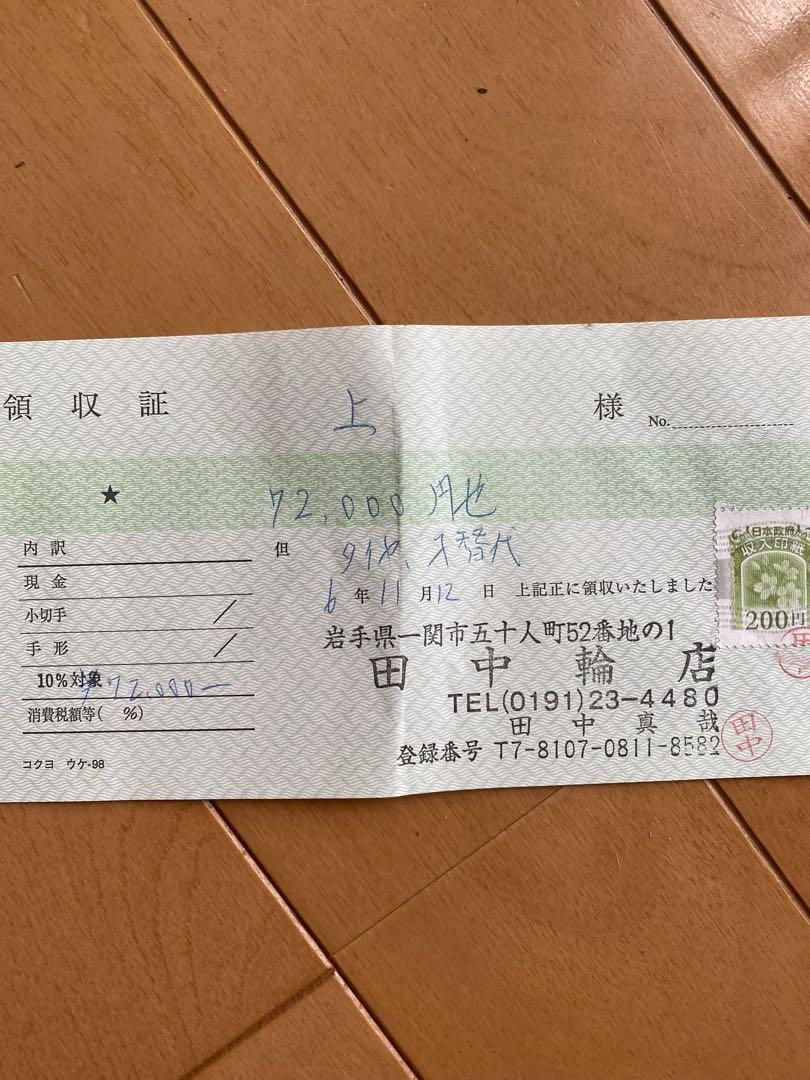 領収証 上 様 No.
★ 72,000円也
内訳 但 タイヤ、 替代
現金 6年11月12日 上記正に領収いたしました
小切手 /
手形 /
10%対象 ¥72,000—
消費税額等( %)
コクヨ ウケ-98
岩手県一関市五十人町52番地の1
田中輪店
TEL(0191)23-4480
田中真哉
登録番号 T7-8107-0811-8582
田中
日本政府
収入印紙
200円